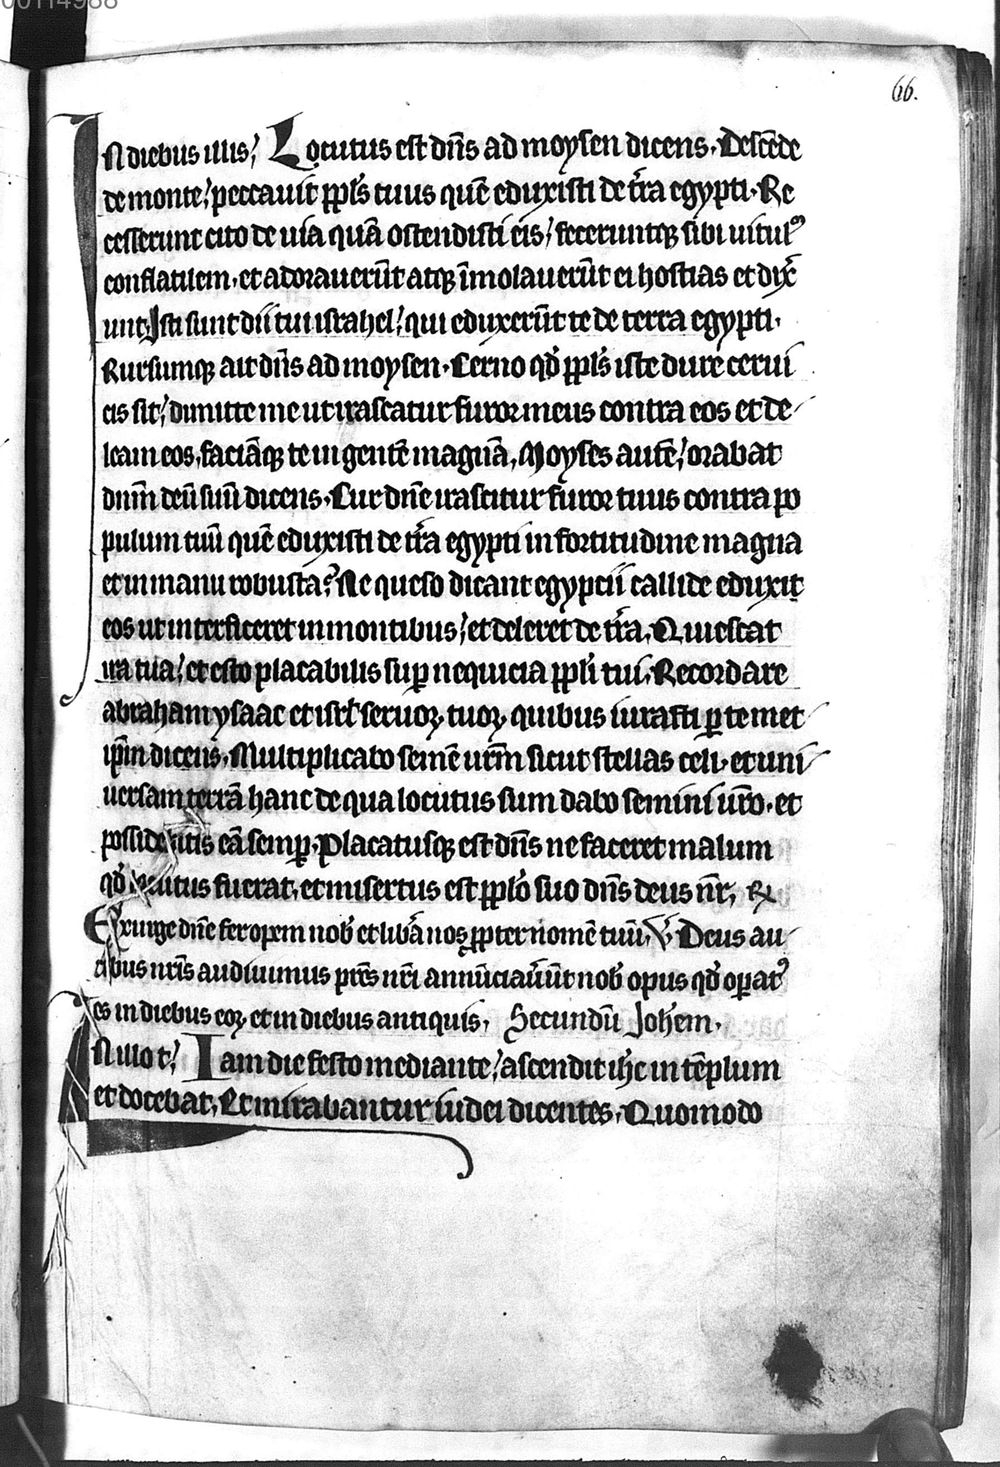 00114988
66.
IN diebus illis; Locutus est dn̄s ad moysen dicens. Descēde
de monte; peccauit ppl̄s tuus quē eduxisti de t̄ra egypti. Re
cesserunt cito de uia quā ostendisti eis; feceruntqꝫ sibi uitulꝰ
conflatilem. et adorauerūt atqꝫ īmolauerūt ei hostias et dix̄
unt. Isti sunt dii tui israhel; qui eduxerūt te de terra egypti.
Rursumqꝫ ait dn̄s ad moysen. Cerno qd̄ ppl̄s iste dure cerui
cis sit; dimitte me ut irascatur furor meus contra eos et de
leam eos, faciāqꝫ te in gentē magnā. Moyses autē; orabat
dn̄m deū suū dicens. Cur dn̄e irascitur furor tuus contra po
pulum tuū quē eduxisti de t̄ra egypti in fortitudine magna
et in manu robusta? Ne queso dicant egyptii callide eduxit
eos ut interficeret in montibus; et deleret de t̄ra. Quiescat
ira tua; et esto placabilis suꝑ nequicia ppl̄i tui. Recordare
abraham ysaac et isrl̄ seruoꝝ tuoꝝ, quibus iurasti ꝑ temet
ip̄m dicens. Multiplicabo semē ur̄m sicut stellas celi. et uni
uersam terrā hanc de qua locutus sum dabo semini ur̄o. et
possidebitis eā semꝑ. Placatusqꝫ est dn̄s ne faceret malum
qd̄ locutus fuerat, et misertus est ppl̄o suo dn̄s deus nr̄, ℞
Exurge dn̄e fer opem nob̄ et lib̄a nos ꝓpter nomē tuū, ℣ Deus au
ribus nr̄is audiuimus pr̄es nr̄i annūciauer̄ūt nob̄ opus qd̄ oꝑatꝰ
es in diebus eoꝝ et in diebus antiquis. Secundū Joh̄em.
IN illo t̄; Iam die festo mediante; ascendit ih̄c in tēplum
et docebat. Et mirabantur iudei dicentes. Quomodo